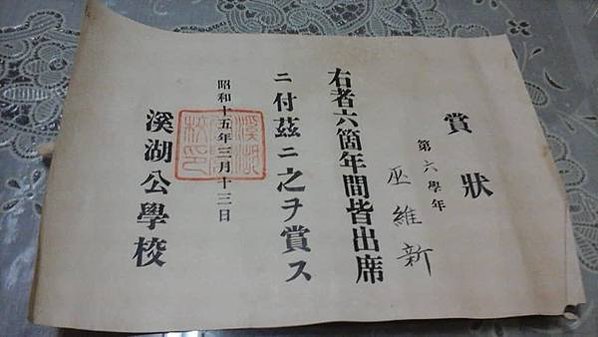 賞狀
第六學年
巫維新
右者六箇年間皆出席
ニ付茲ニ之ヲ賞ス
昭和十五年三月十三日
溪湖公學校